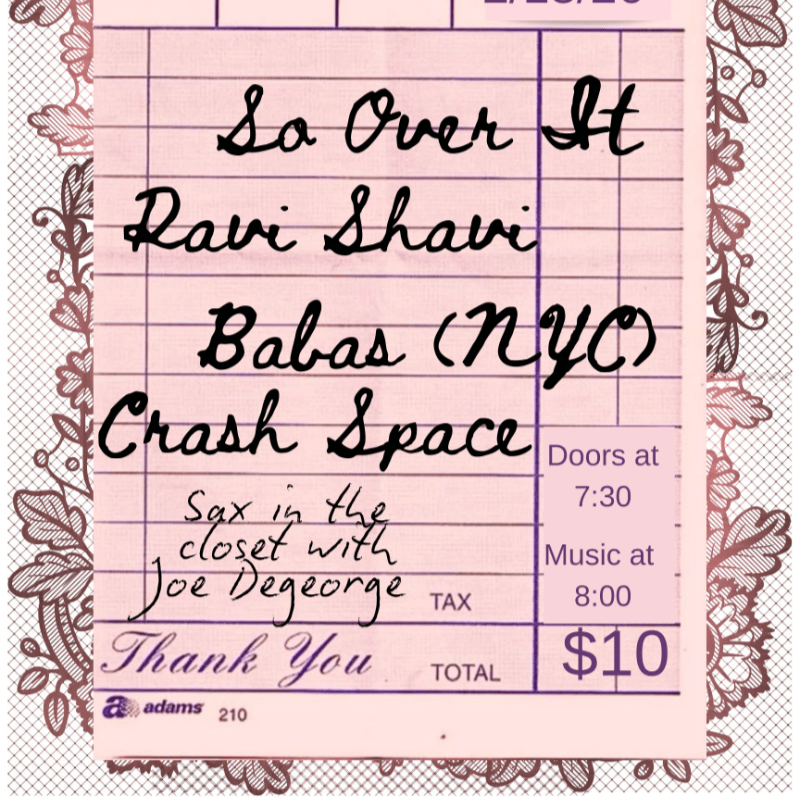 So Over It
Ravi Shavi
Babas (NYC)
Crash Space
Sax in the
closet with
Joe Degeorge
Doors at
7:30
Music at
8:00
TAX
Thank You
TOTAL
$10
adams 210